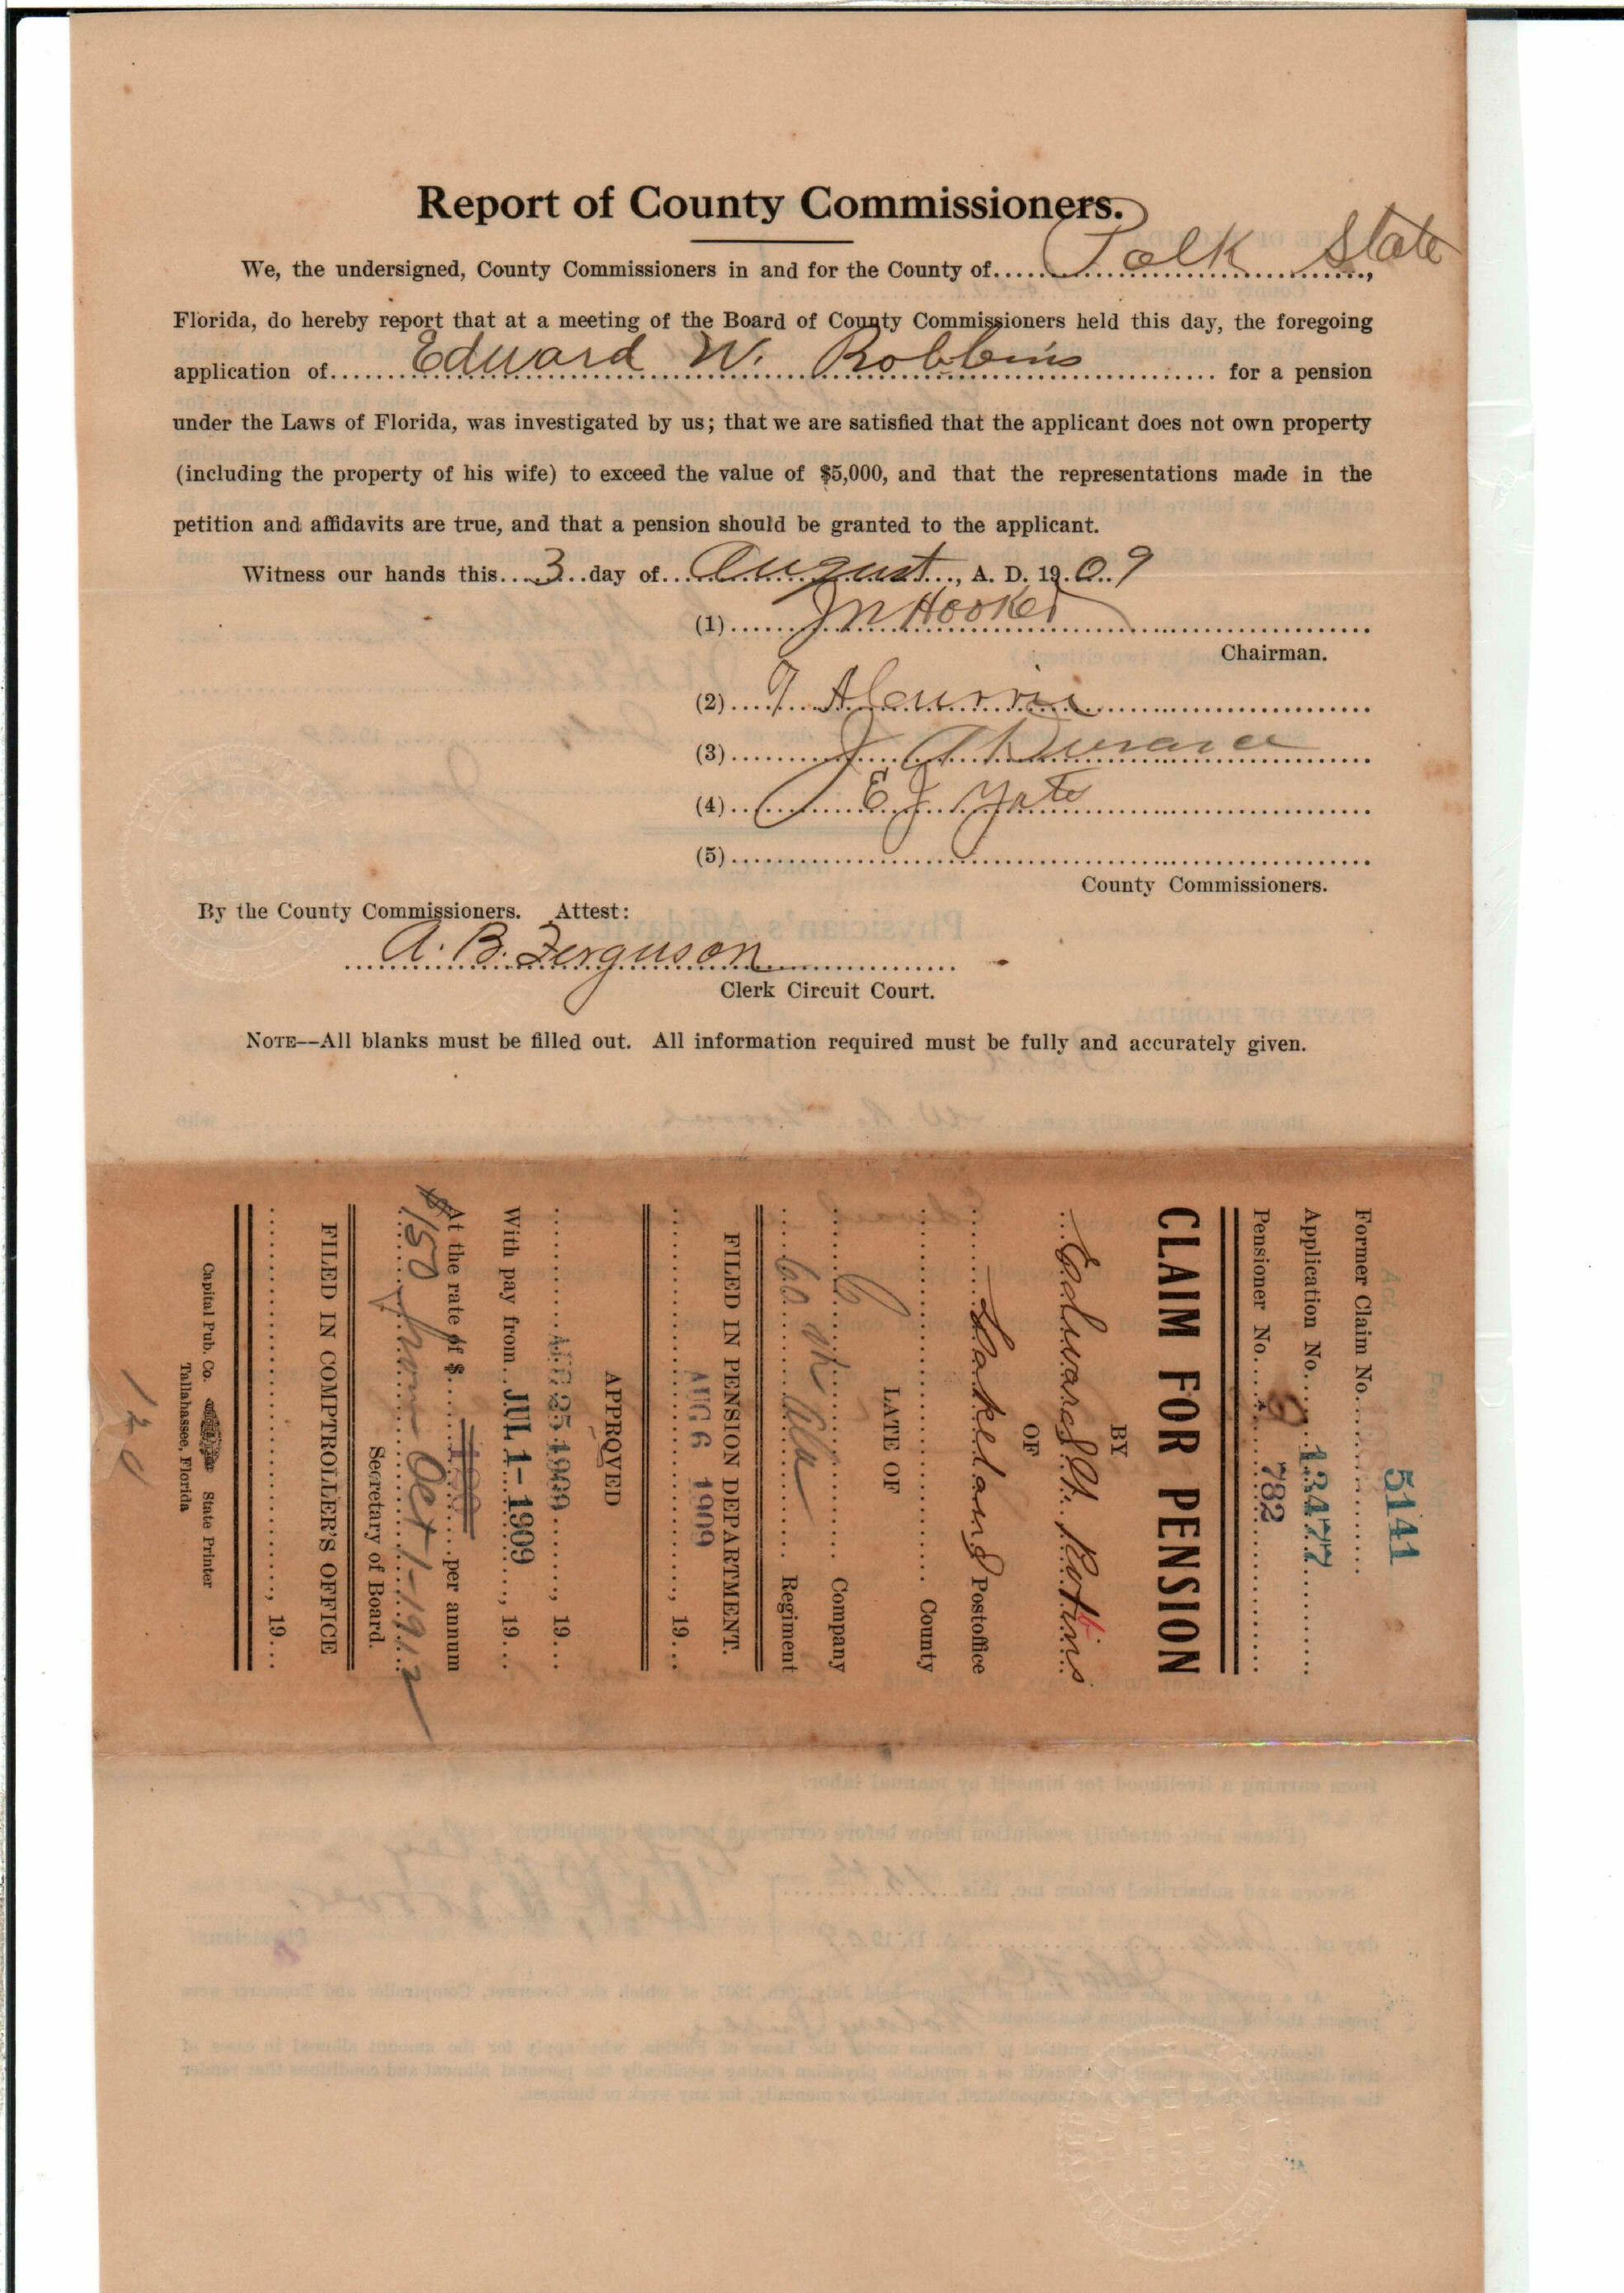 Report of County Commissioners.
We, the undersigned, County Commissioners in and for the County of Polk State,
Florida, do hereby report that at a meeting of the Board of County Commissioners held this day, the foregoing
application of Edward W. Robbins for a pension
under the Laws of Florida, was investigated by us; that we are satisfied that the applicant does not own property
(including the property of his wife) to exceed the value of $5,000, and that the representations made in the
petition and affidavits are true, and that a pension should be granted to the applicant.
Witness our hands this 3 day of August, A. D. 1909
(1) J N Hooker
Chairman.
(2) T A Currie
(3) J A Durance
(4) E J Yate
(5)
County Commissioners.
By the County Commissioners. Attest:
A. B. Ferguson
Clerk Circuit Court.
NOTE--All blanks must be filled out. All information required must be fully and accurately given.
5141
Former Claim No.
Application No. 13477
Pensioner No. 782
CLAIM FOR PENSION
BY
Edward W. Robbins
OF
Lakeland Postoffice
County
LATE OF
C Company
60th Ala Regiment
FILED IN PENSION DEPARTMENT.
AUG 6 1909, 19
APPROVED
AUG 25 1909, 19
With pay from JUL 1-1909, 19
At the rate of $ 120 per annum
$150 from Oct 1-1912
Secretary of Board.
FILED IN COMPTROLLER'S OFFICE
, 19
Capital Pub. Co. State Printer
Tallahassee, Florida
120